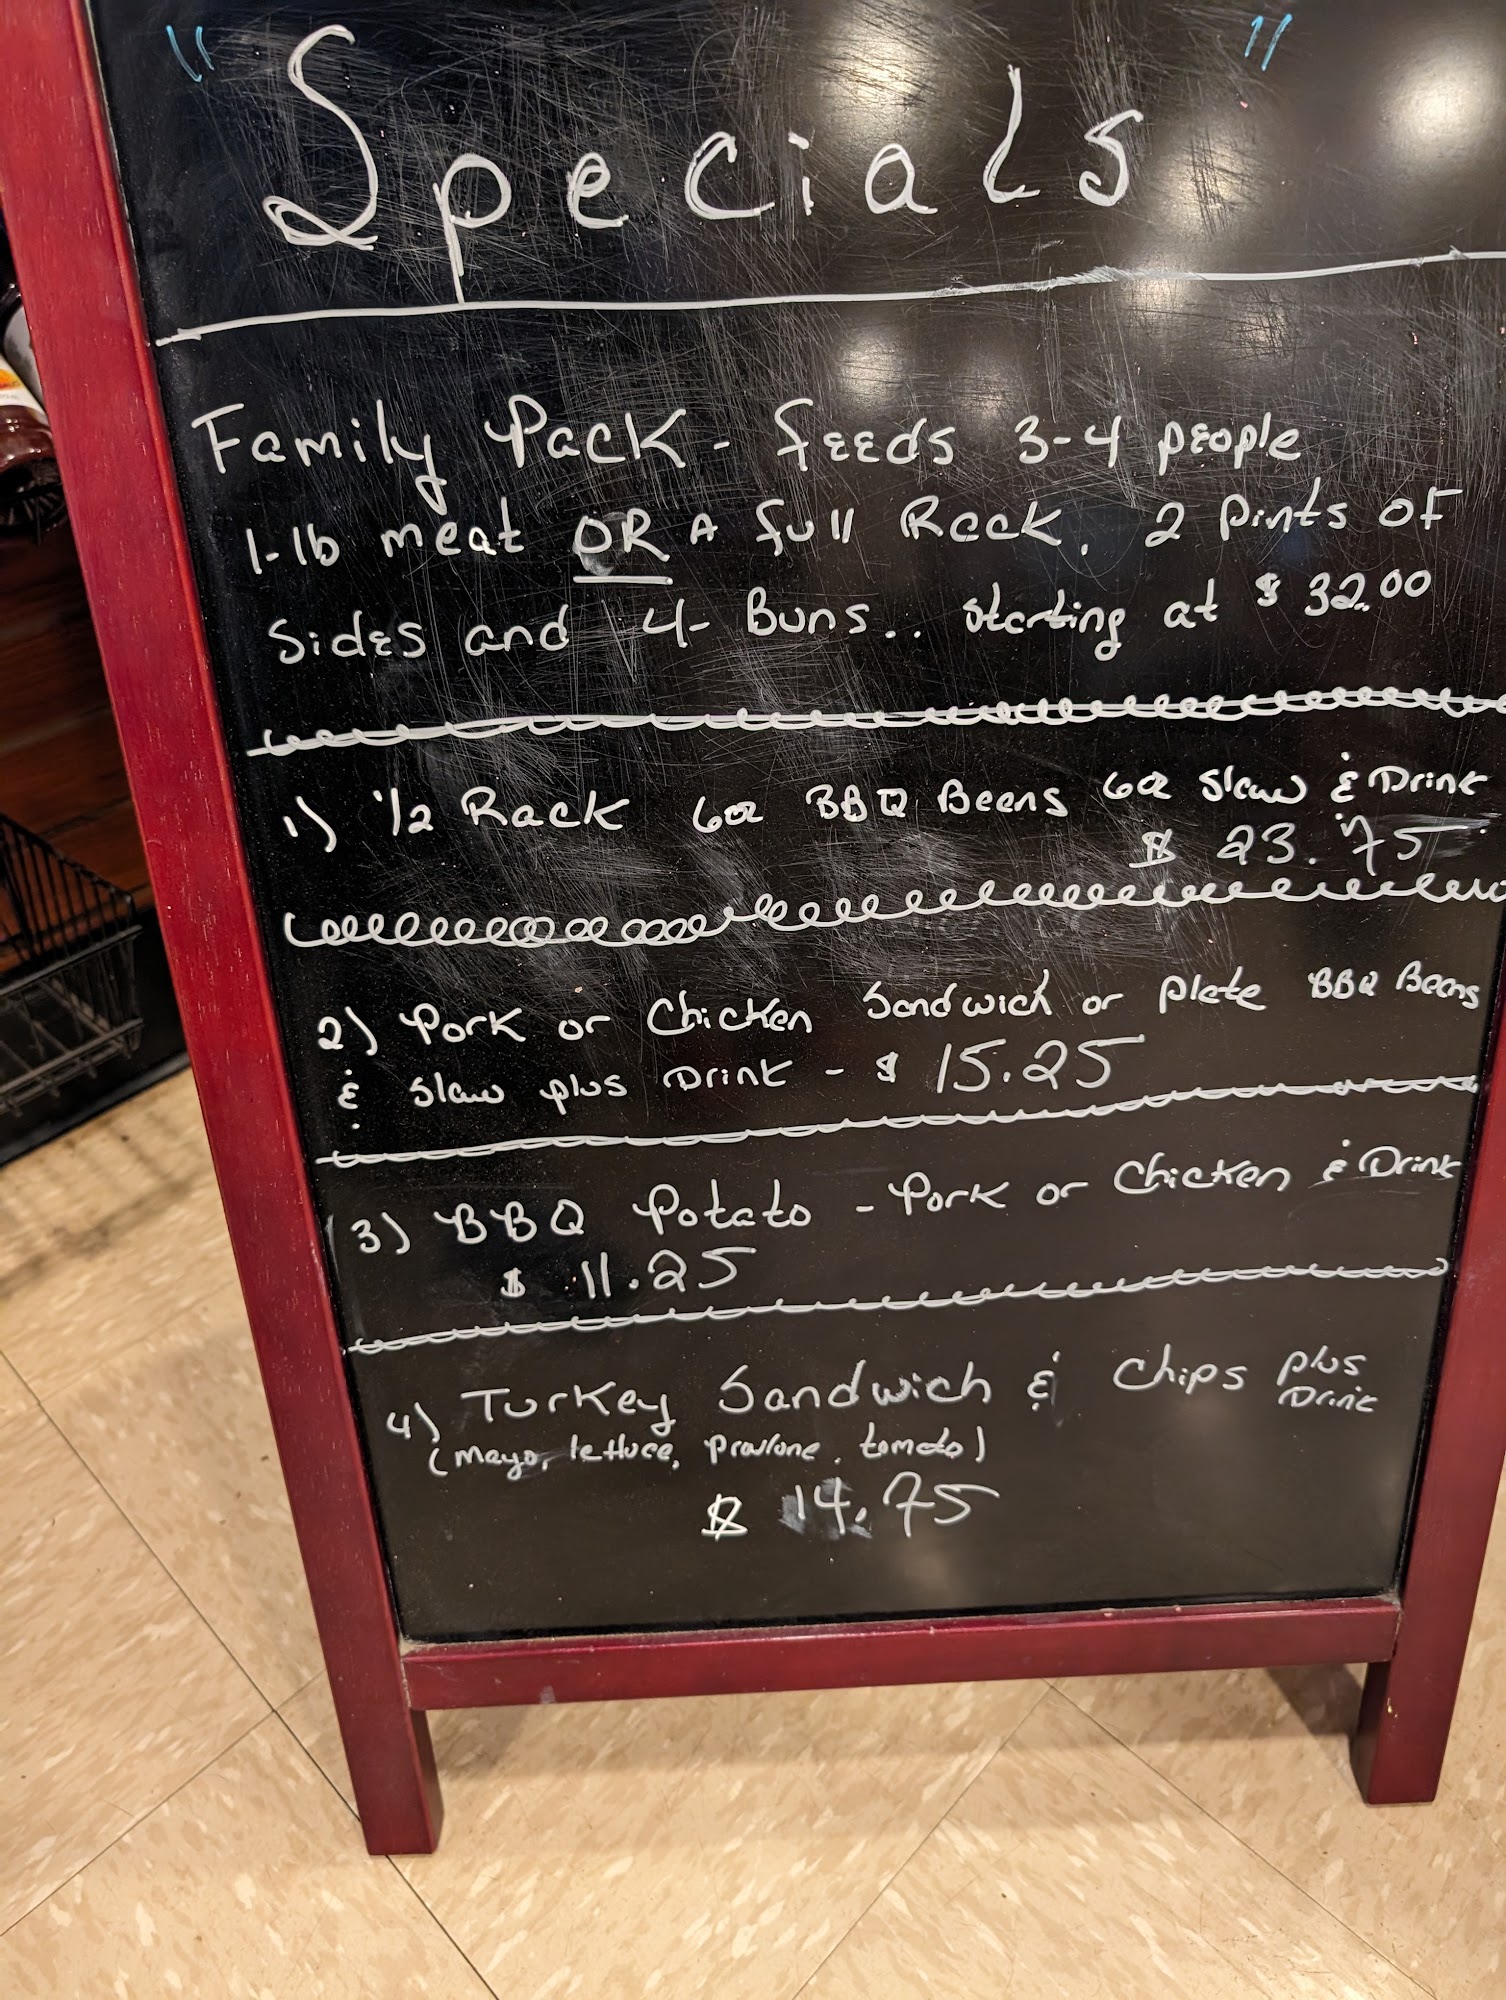 "Specials"
Family Pack - feeds 3-4 people
1-lb meat OR A full Rack. 2 pints of
Sides and 4- Buns.. starting at $32.00
1) 1/2 Rack 6oz BBQ Beans 6oz Slaw & Drink
$23.75
2) Pork or Chicken Sandwich or plate BBQ Beans
& Slaw plus Drink - $15.25
3) BBQ Potato - Pork or Chicken & Drink
$11.25
4) Turkey Sandwich & Chips plus
Drink
(mayo, lettuce, provlone, tomato)
$14.75